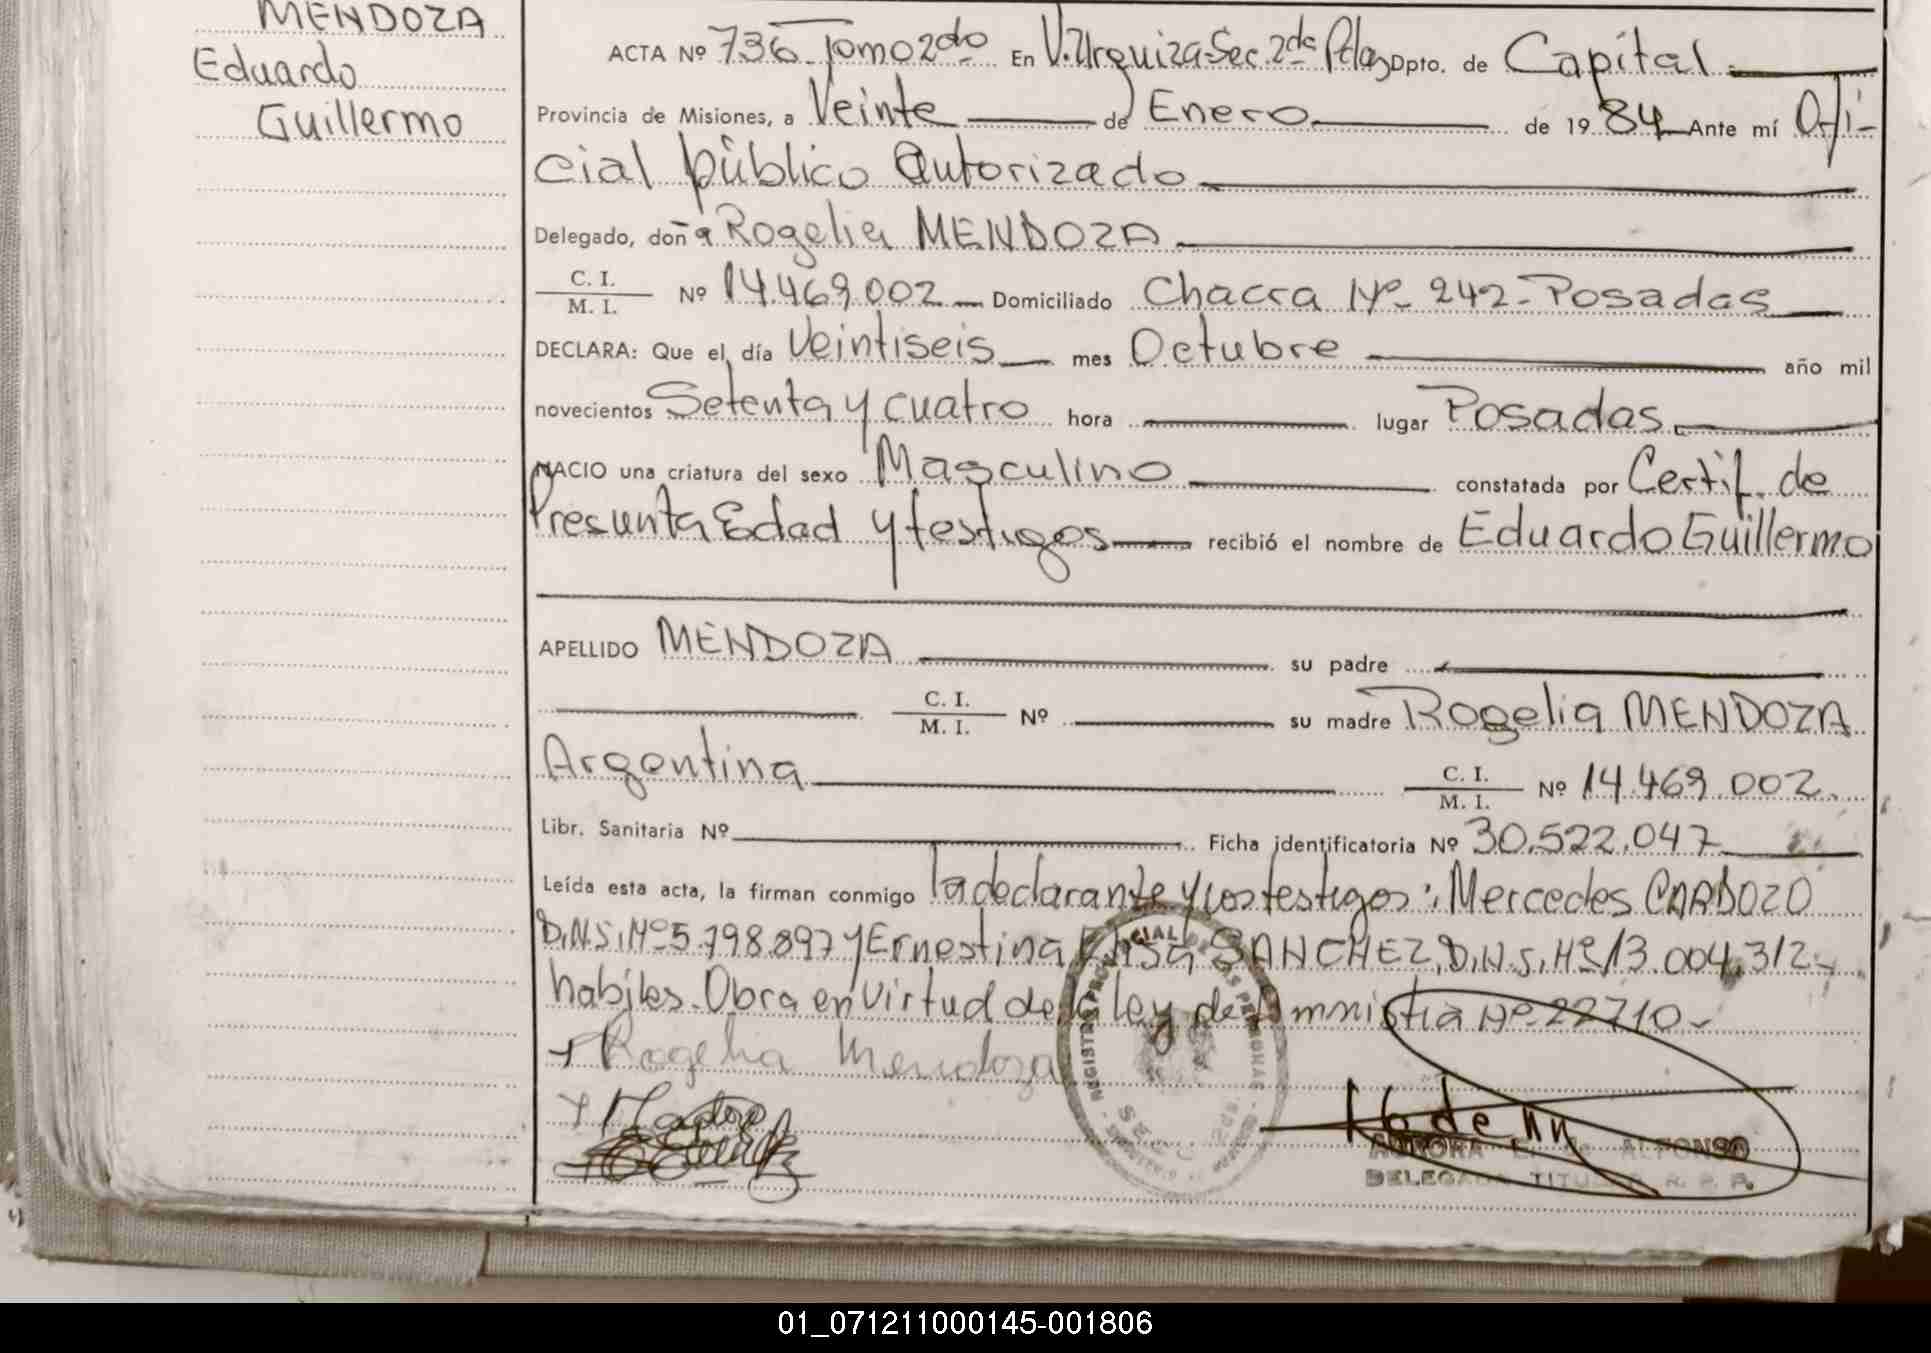 MENDOZA
Eduardo
Guillermo
ACTA Nº 736 Tomo 2do En V. Urquiza-Sec. 2da Pdas Dpto. de Capital
Provincia de Misiones, a Veinte de Enero de 1984 Ante mí Ofi-
cial público Autorizado
Delegado, doña Rogelia MENDOZA
C. I.
M. I. Nº 14.469.002 Domiciliado Chacra Nº 242-Posadas
DECLARA: Que el día Veintiseis mes Octubre año mil
novecientos Setenta y cuatro hora lugar Posadas
NACIO una criatura del sexo Masculino constatada por Certif. de
Presunta Edad y testigos recibió el nombre de Eduardo Guillermo
APELLIDO MENDOZA su padre
C. I.
M. I. Nº su madre Rogelia MENDOZA
Argentina C. I.
M. I. Nº 14.469.002
Libr. Sanitaria Nº Ficha identificatoria Nº 30.522.047
Leída esta acta, la firman conmigo la declarante y los testigos: Mercedes CARDOZO
D.N.I. Nº 5.798.897 y Ernestina Elisa SANCHEZ, D.N.I. Nº 13.004.312-
habiles. Obra en virtud de la ley de Amnistia Nº 22710-
Rogelia Mendoza
AURORA ALFONSO
DELEGADA TITULAR R. P. P.
01_071211000145-001806